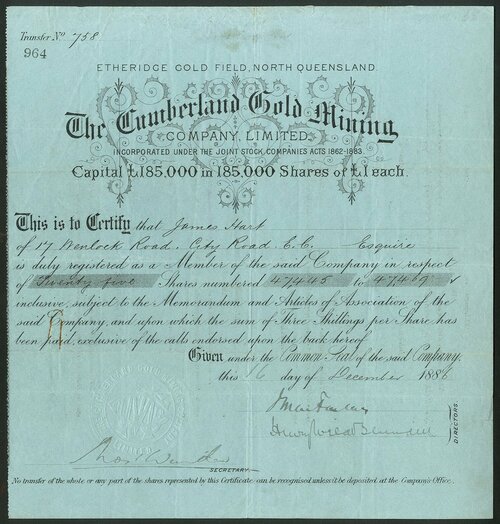 Transfer No 758
964
ETHERIDGE GOLD FIELD, NORTH QUEENSLAND.
The Cumberland Gold Mining
COMPANY, LIMITED.
INCORPORATED UNDER THE JOINT STOCK COMPANIES ACTS 1862-1883.
Capital £185,000 in 185,000 Shares of £1 each.
This is to Certify that James Hart
of 17 Wenlock Road. City Road. E.C. Esquire
is duly registered as a Member of the said Company in respect
of Twenty five Shares numbered 47445 to 47469
inclusive, subject to the Memorandum and Articles of Association of the
said Company, and upon which the sum of Three Shillings per Share has
been paid, exclusive of the calls endorsed upon the back hereof.
Given under the Common Seal of the said Company,
this 16 day of December 1886
DIRECTORS.
SECRETARY.
No transfer of the whole or any part of the shares represented by this Certificate can be recognised unless it be deposited at the Company's Office.